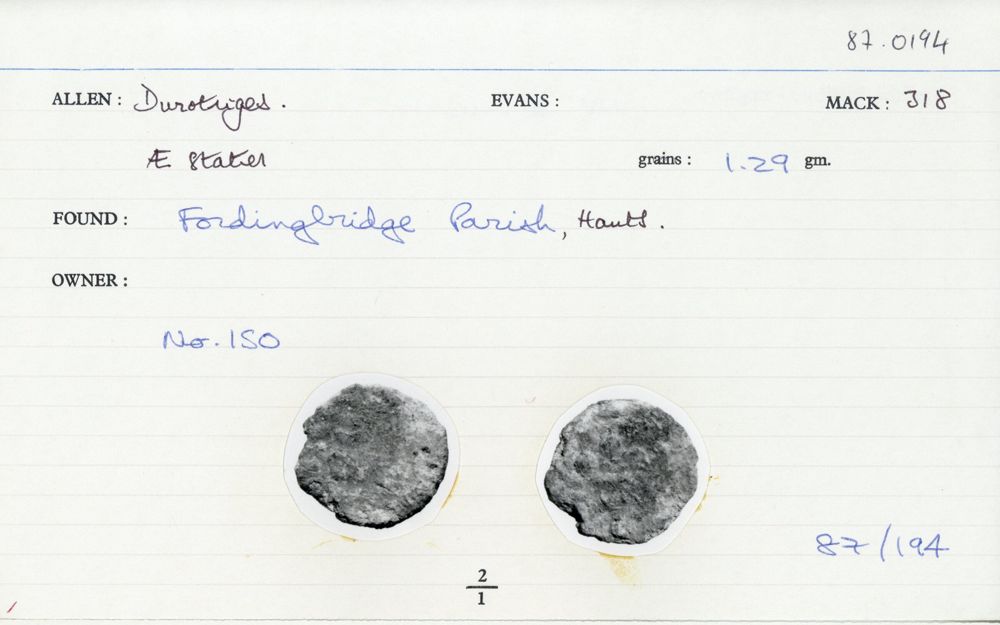 87.0194
ALLEN : Durotriges. EVANS : MACK : 318
Æ Stater grains : 1.29 gm.
FOUND : Fordingbridge Parish, Hants.
OWNER :
No. 150
87/194
2
1